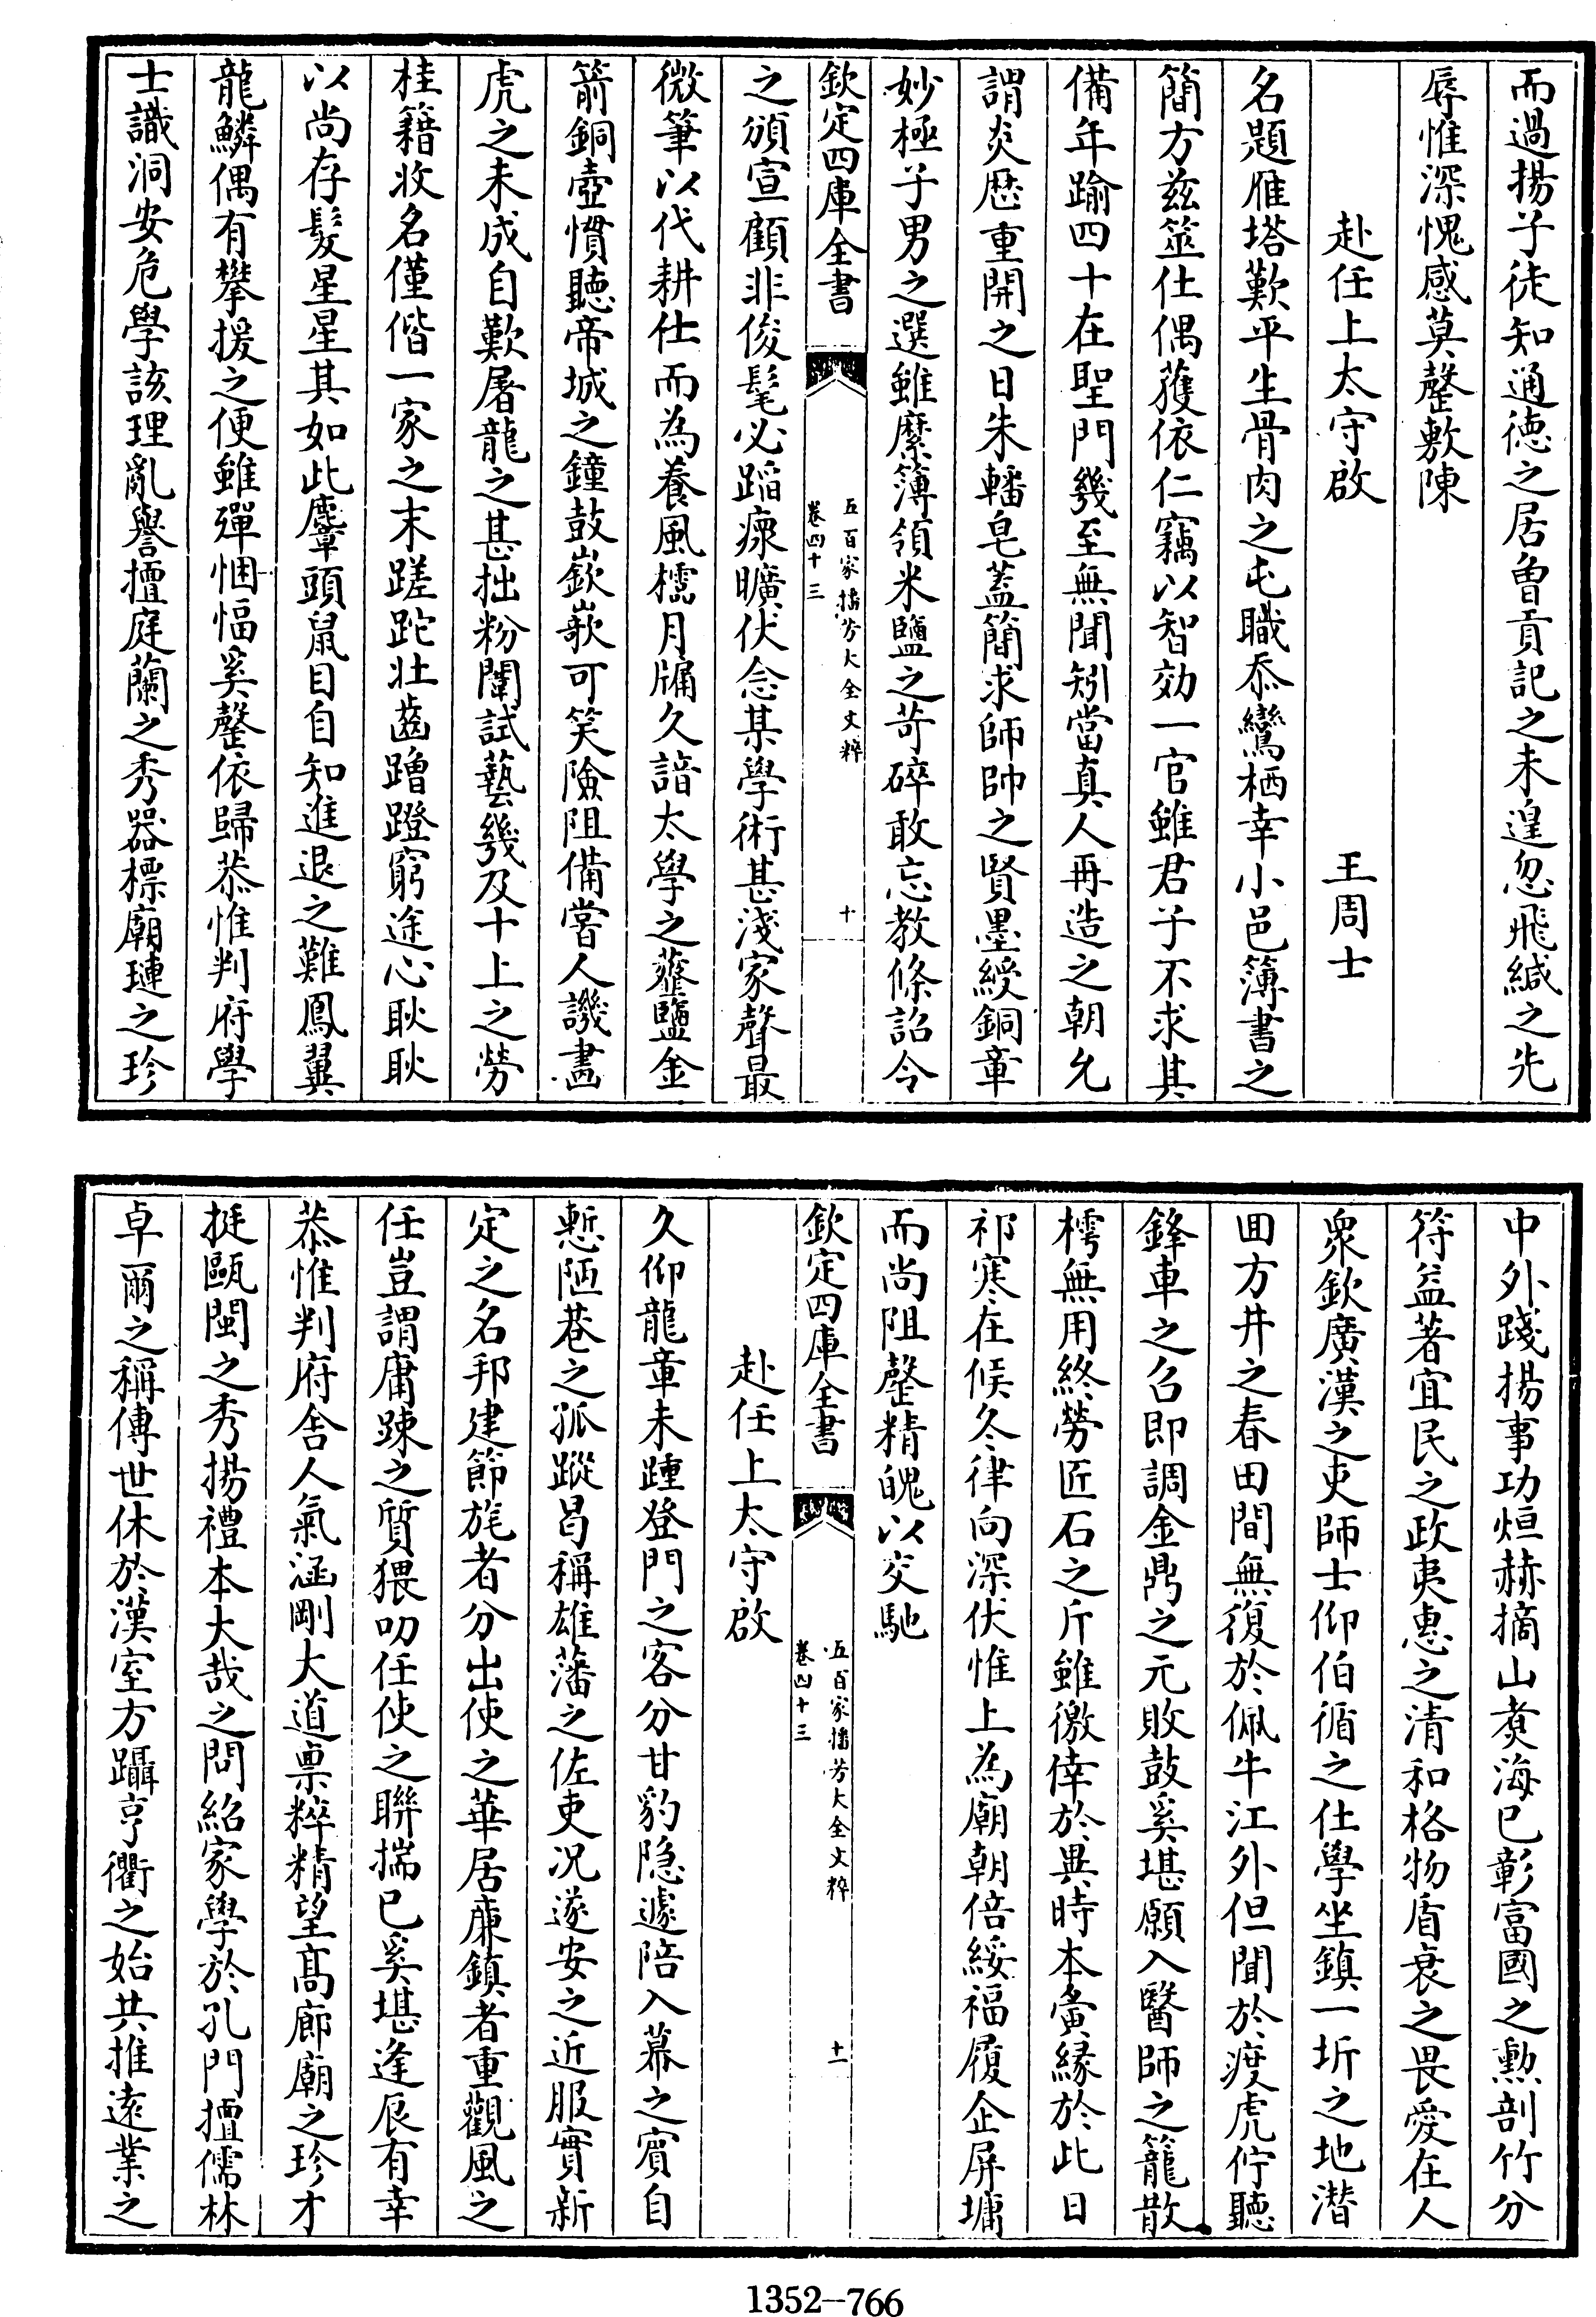 而過揚子徒知通徳之居曾貢記之未遑忽飛緘之先
辱惟深愧感莫罄敷陳
赴任上太守啟 王周士
名題雁塔歎平生骨肉之屯職忝鸞栖幸小邑簿書之
簡方兹筮仕偶獲依仁竊以智効一官雖君子不求其
備年踰四十在聖門幾至無聞矧當真人再造之朝允
謂炎厯重開之日朱轓皂蓋簡求師帥之賢墨綬銅章
妙極子男之選雖縻簿領米鹽之苛碎敢忘教條詔令
欽定四庫全書
五百家播芳大全文粹
卷四十三
十
之頒宣顧非俊髦必蹈瘝曠伏念某學術甚淺家聲最
微筆以代耕仕而為養風檽月牖久諳太學之虀鹽金
箭銅壺慣聽帝城之鐘鼓嶔嶔可笑險阻備嘗人譏畵
虎之未成自歎屠龍之甚拙粉闈試藝幾及十上之勞
桂籍收名僅偕一家之末蹉跎壯齒蹭蹬窮途心耿耿
以尚存髪星星其如此麞頭鼠目自知進退之難鳳翼
龍鱗偶有攀援之便雖殫悃愊奚罄依歸恭惟判府學
士識洞安危學該理亂譽擅庭蘭之秀器標廟璉之珍
中外踐揚事功烜赫摘山煑海已彰富國之勲剖竹分
符益著宜民之政夷惠之清和格物盾衰之畏愛在人
衆欽廣漢之吏師士仰伯循之仕學坐鎮一圻之地潛
回方井之春田間無復於佩牛江外但聞於渡虎佇聽
鋒車之召即調金鼎之元敗鼓奚堪願入醫師之籠散
樗無用終勞匠石之斤雖徼倖於異時本夤緣於此日
祁寒在候冬律向深伏惟上為廟朝倍綏福履企屏墉
而尚阻罄精魄以交馳
欽定四庫全書
五百家播芳大全文粹
卷四十三
十一
赴任上太守啟
久仰龍章未踵登門之客分甘豹隐遽陪入幕之賓自
慙陋巷之孤蹤曷稱雄藩之佐吏况遂安之近服實新
定之名邦建節旄者分出使之華居廉鎮者重觀風之
任豈謂庸踈之質猥叨任使之聯揣已奚堪逢辰有幸
恭惟判府舍人氣涵剛大道禀粹精望髙廊廟之珍才
挺甌閩之秀揚禮本大哉之問紹家學於孔門擅儒林
卓爾之稱傳世休於漢室方躡亨衢之始共推逺業之
1352—766